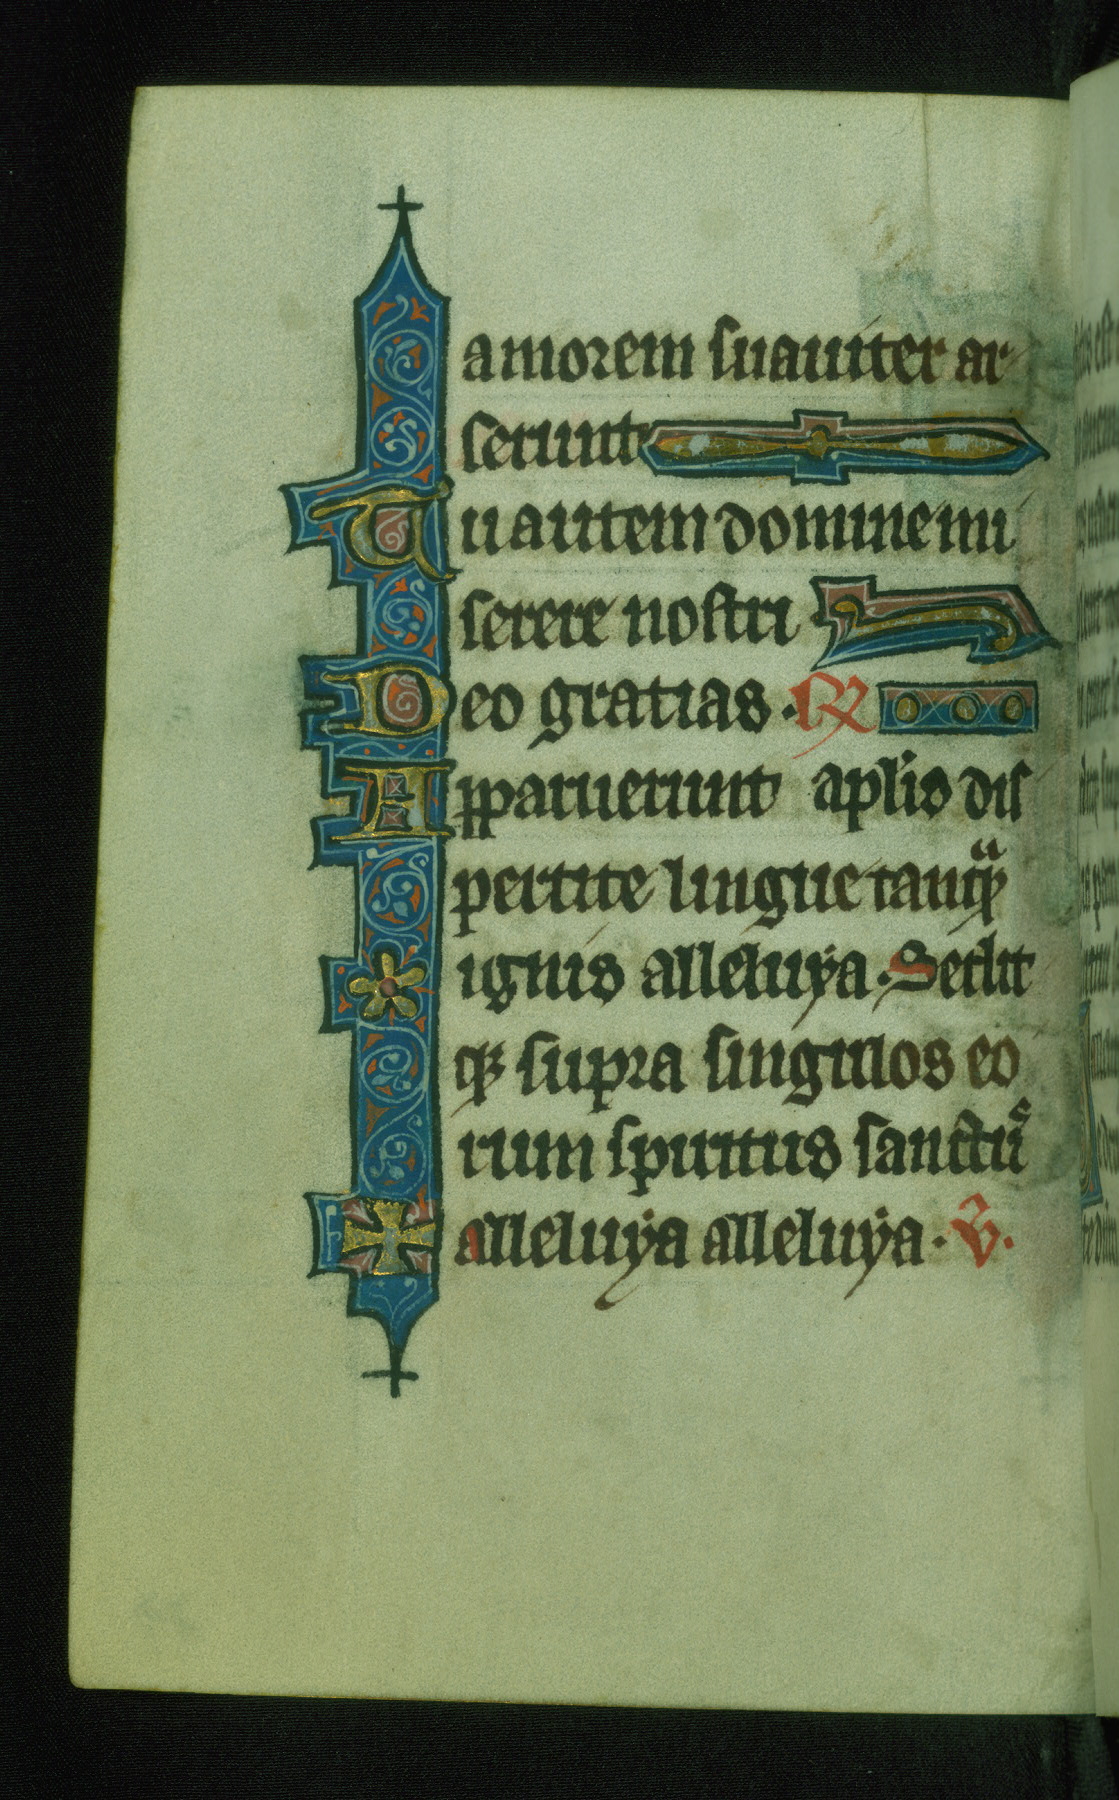 amorem suauiter ar
serunt
Tu autem domine mi
serere nostri
Deo gratias. R̃
Apparuerunt aplis dis
pertite lingue tanqͣ
ignis alleluya. Sedit
qꝫ supra singulos eo
rum spiritus sanctuˢ
alleluya alleluya. V̄.